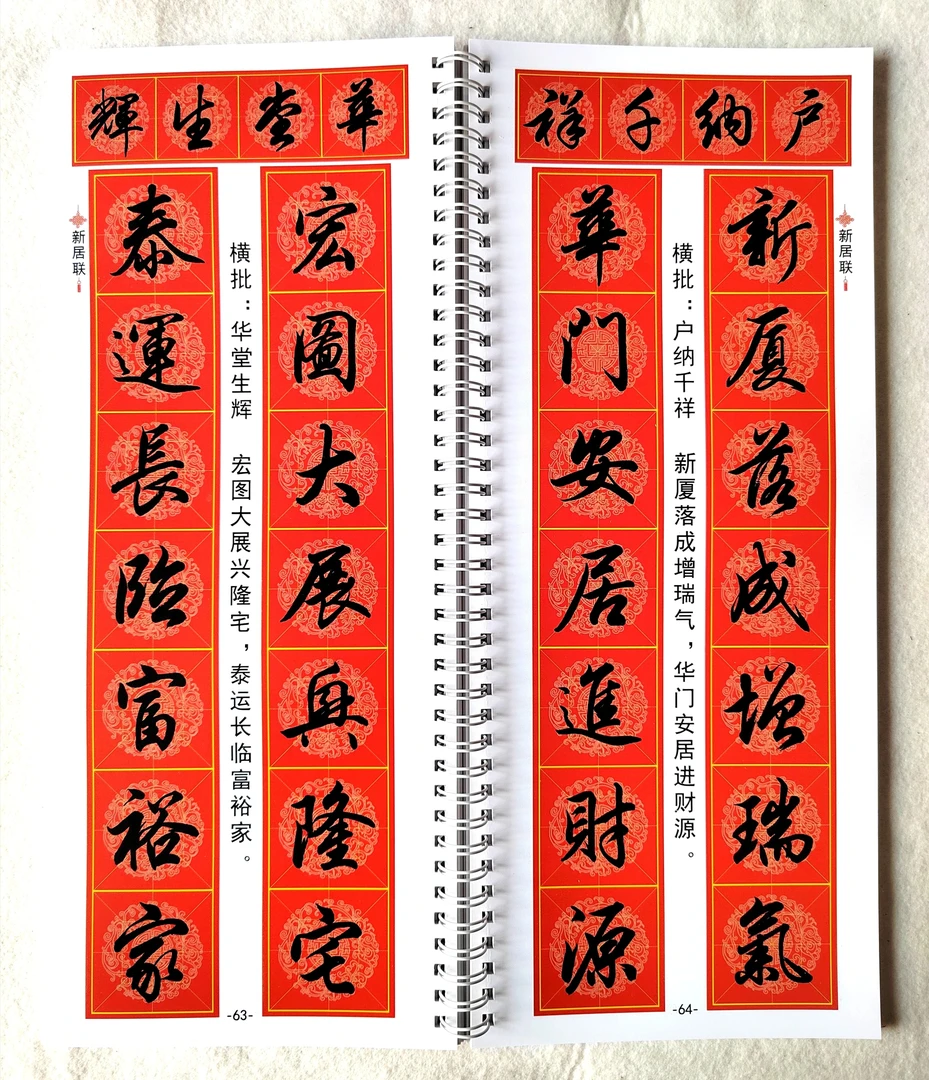 華堂生輝
宏圖大展興隆宅
横批：华堂生辉 宏图大展兴隆宅，泰运长临富裕家。
泰運長臨富裕家
新居联
-63-
户納千祥
新居联
新厦落成增瑞氣
横批：户纳千祥 新厦落成增瑞气，华门安居进财源。
華门安居進財源
-64-